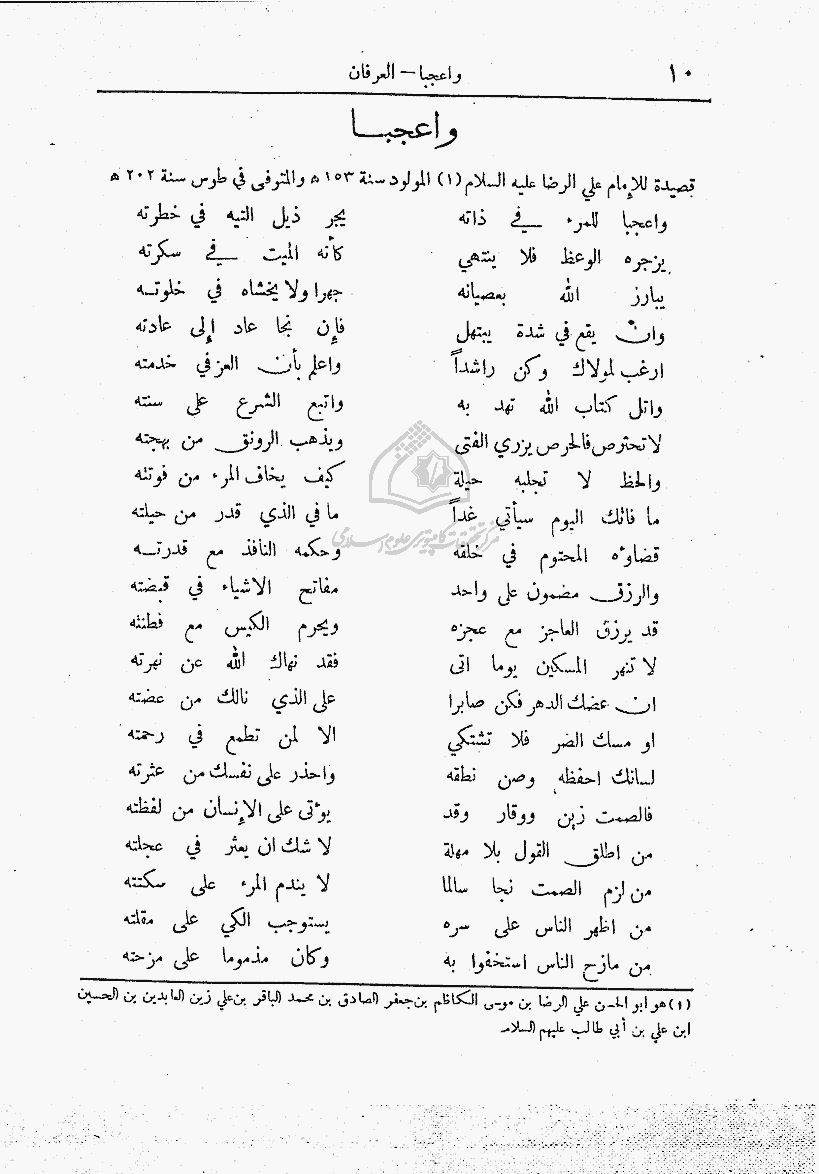 ١٠ واعجبا – العرفان
واعجبــا
قصيدة للإمام علي الرضا عليه السلام (١) المولود سنة ١٥٣ ه والمتوفى في طوس سنة ٢٠٢ ه
واعجبا للمرء في ذاته يجر ذيل التيه في خطرته
يزجره الوعظ فلا ينتهي كأنه الميت في سكرته
يبارز الله بعصيانه جهرا ولا يخشاه في خلوتـه
وان يقع في شدة يبتهل فإن نجا عاد إلى عادته
ارغب لمولاك وكن راشداً واعلم بأن العز في خدمته
واتل كتاب الله تهد به واتبع الشرع على سنته
لا تحترص فالحرص يزري الفتى ويذهب الرونق من بهجته
والحظ لا تجلبه حيلة كيف يخاف المرء من فوتنه
ما فاتك اليوم سيأتي غداً ما في الذي قدر من حيلته
قضاؤه المحتوم في خلقه وحكمه النافذ مع قدرتـه
والرزق مضمون على واحد مفاتح الاشياء في قبضته
قد يرزق العاجز مع عجزه ويحرم الكيس مع فطنته
لا تنهر المسكين يوما اتى فقد نهاك الله عن نهرته
ان عضك الدهر فكن صابرا على الذي نالك من عضته
او مسك الضر فلا تشتكي الا لمن تطمع في رحمته
لسانك احفظه وصن نطقه واحذر على نفسك من عثرته
فالصمت زين ووقار وقد يؤتى على الإنسان من لفظته
من اطلق القول بلا مهلة لا شك ان يعثر في عجلته
من لزم الصمت نجا سالما لا يندم المرء على سكتته
من اظهر الناس على سره يستوجب الكي على مقلته
من مازح الناس استخفوا به وكان مذموما على مزحته
(١) هو ابو الحسن علي الرضا بن موسى الكاظم بن جعفر الصادق بن محمد الباقر بن علي زين العابدين بن الحسين
ابن علي بن أبي طالب عليهم السلام
مرکز تحقیقات کامپیوتری علوم اسلامی